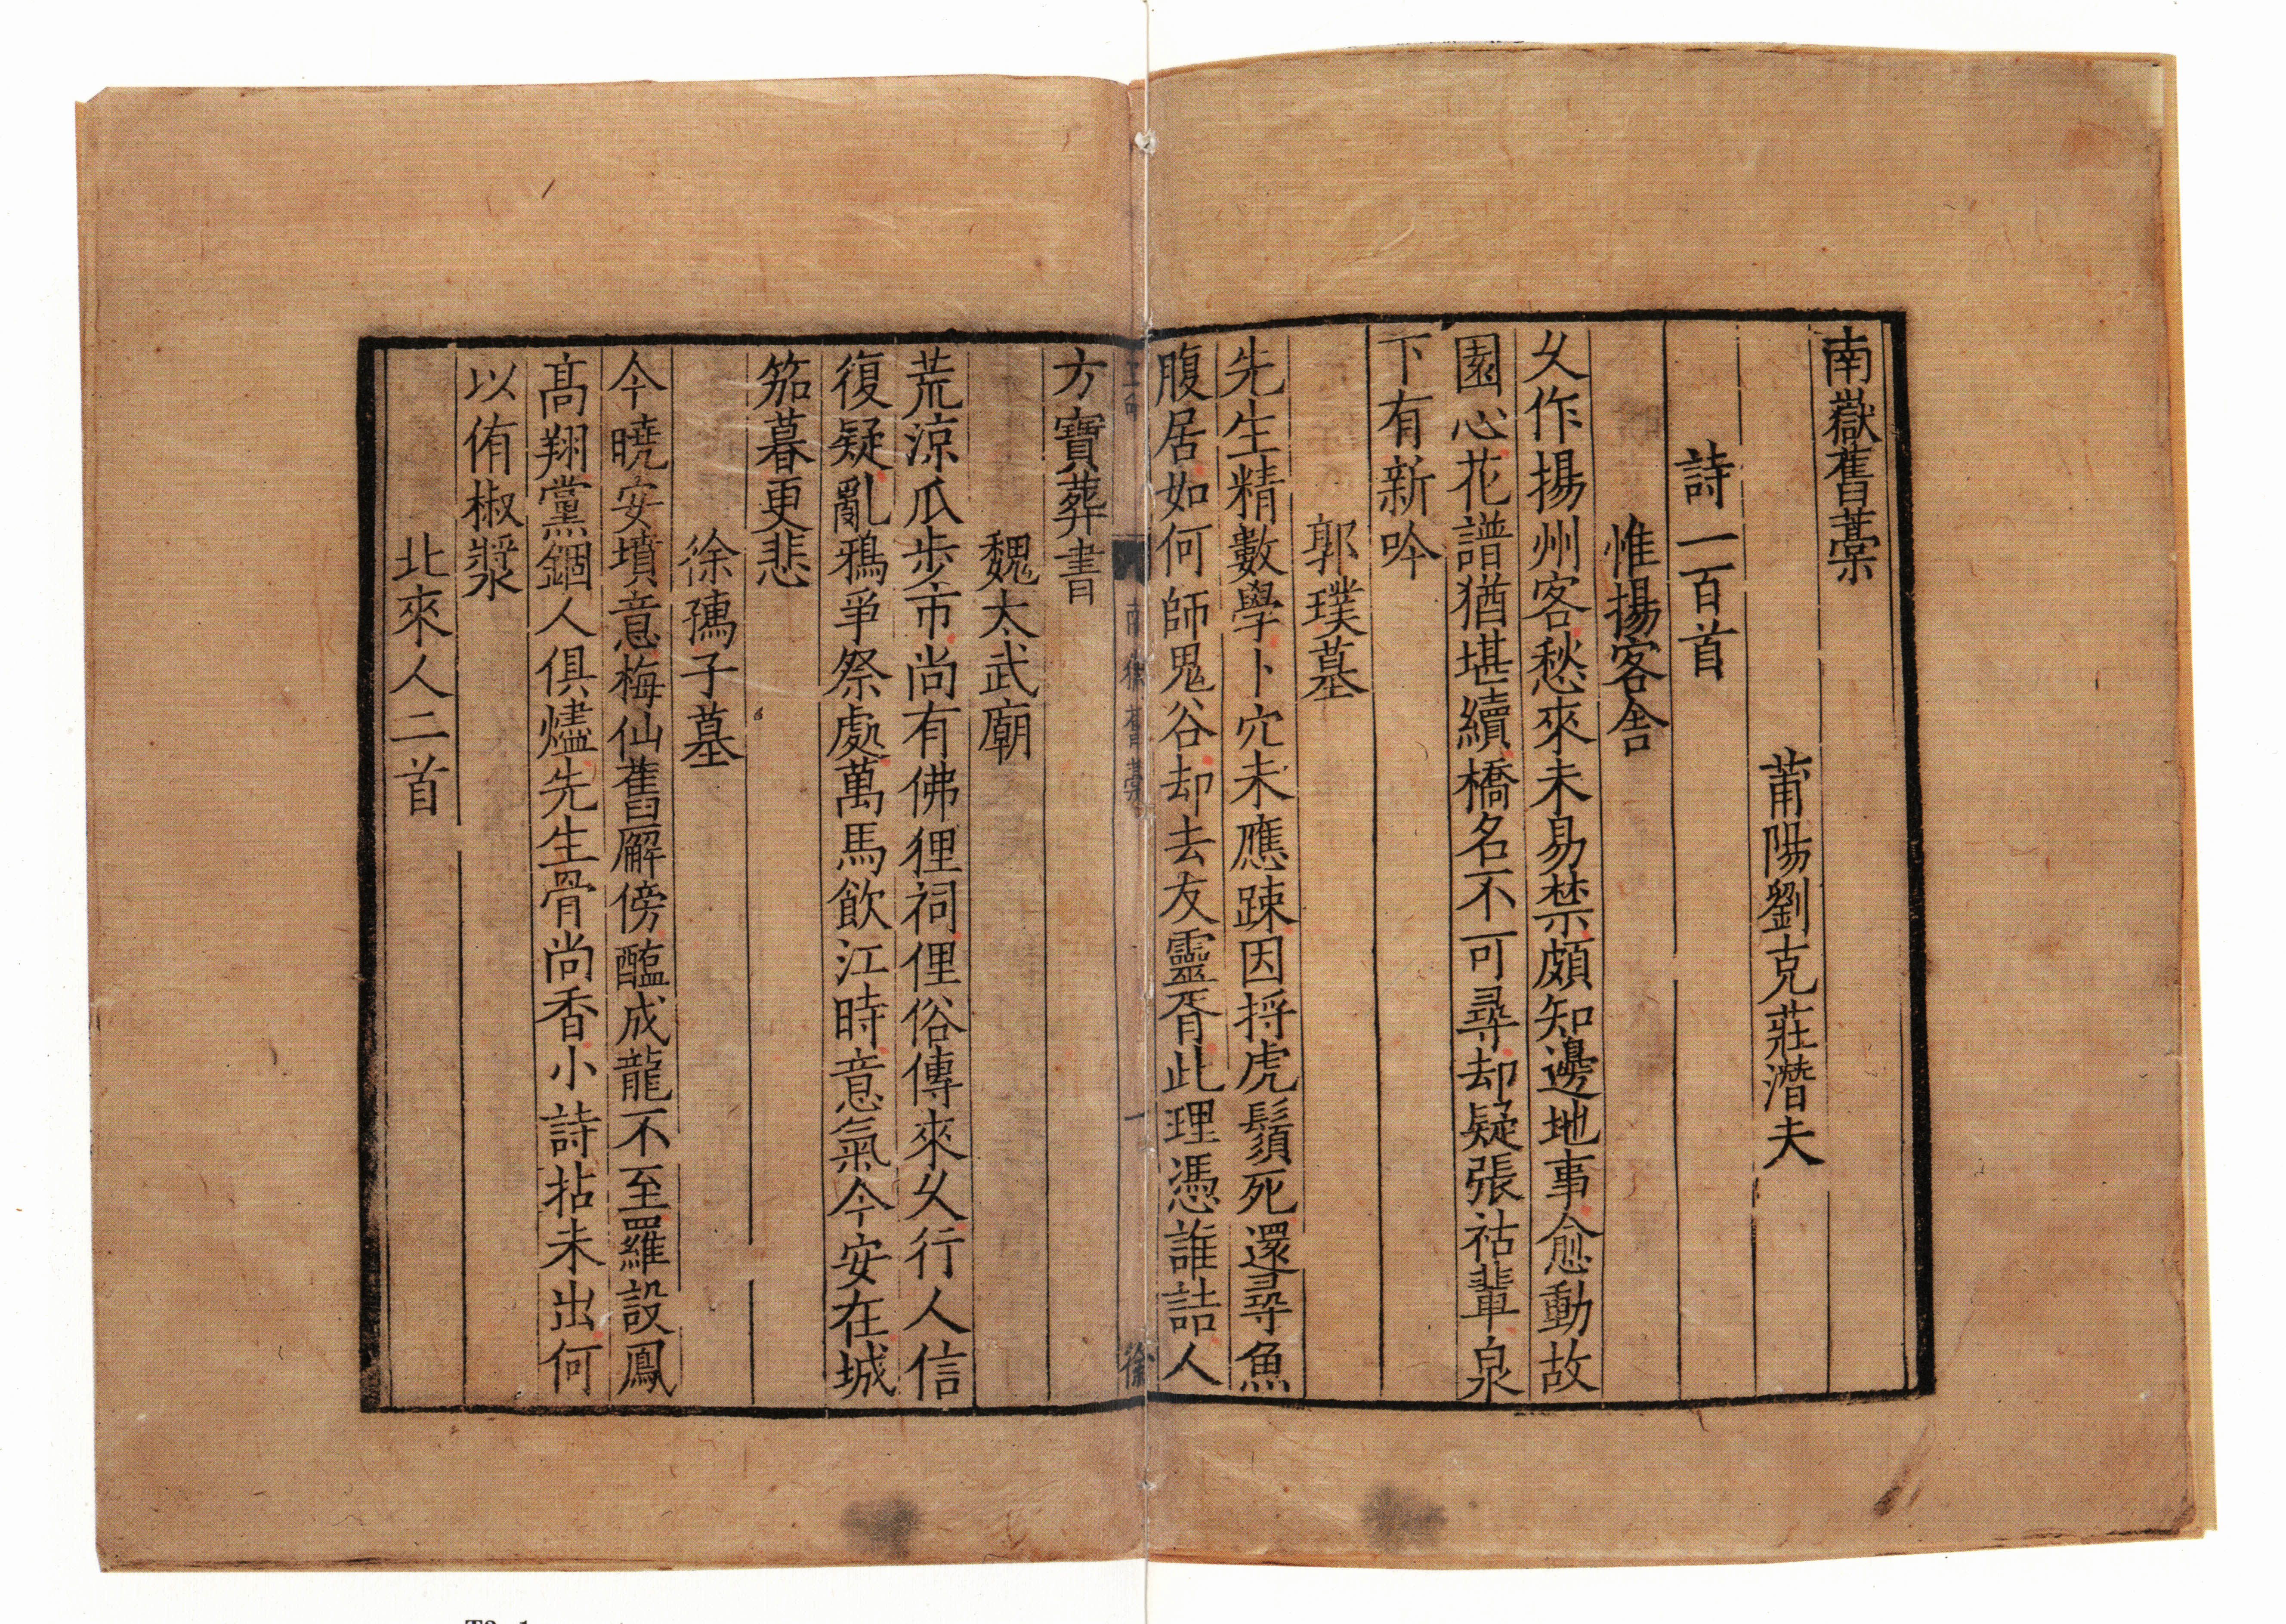 南嶽舊藁
莆陽劉克莊潛夫
詩一百首
惟揚客舍
久作揚州客愁來未易禁頗知邊地事愈動故
園心花譜猶堪續橋名不可尋却疑張祜輩泉
下有新吟
郭璞墓
先生精數學卜穴未應踈因捋虎鬚死還尋魚
腹居如何師鬼谷却去友靈胥此理憑誰詰人
方寶葬書
南徐舊藁
一
徐
魏太武廟
荒涼瓜步市尚有佛狸祠俚俗傳來久行人信
復疑亂鴉爭祭處萬馬飲江時意氣今安在城
笳暮更悲
徐孺子墓
今曉安墳意梅仙舊廨傍醢成龍不至羅設鳳
髙翔黨錮人俱燼先生骨尚香小詩拈未出何
以侑椒漿
北來人二首